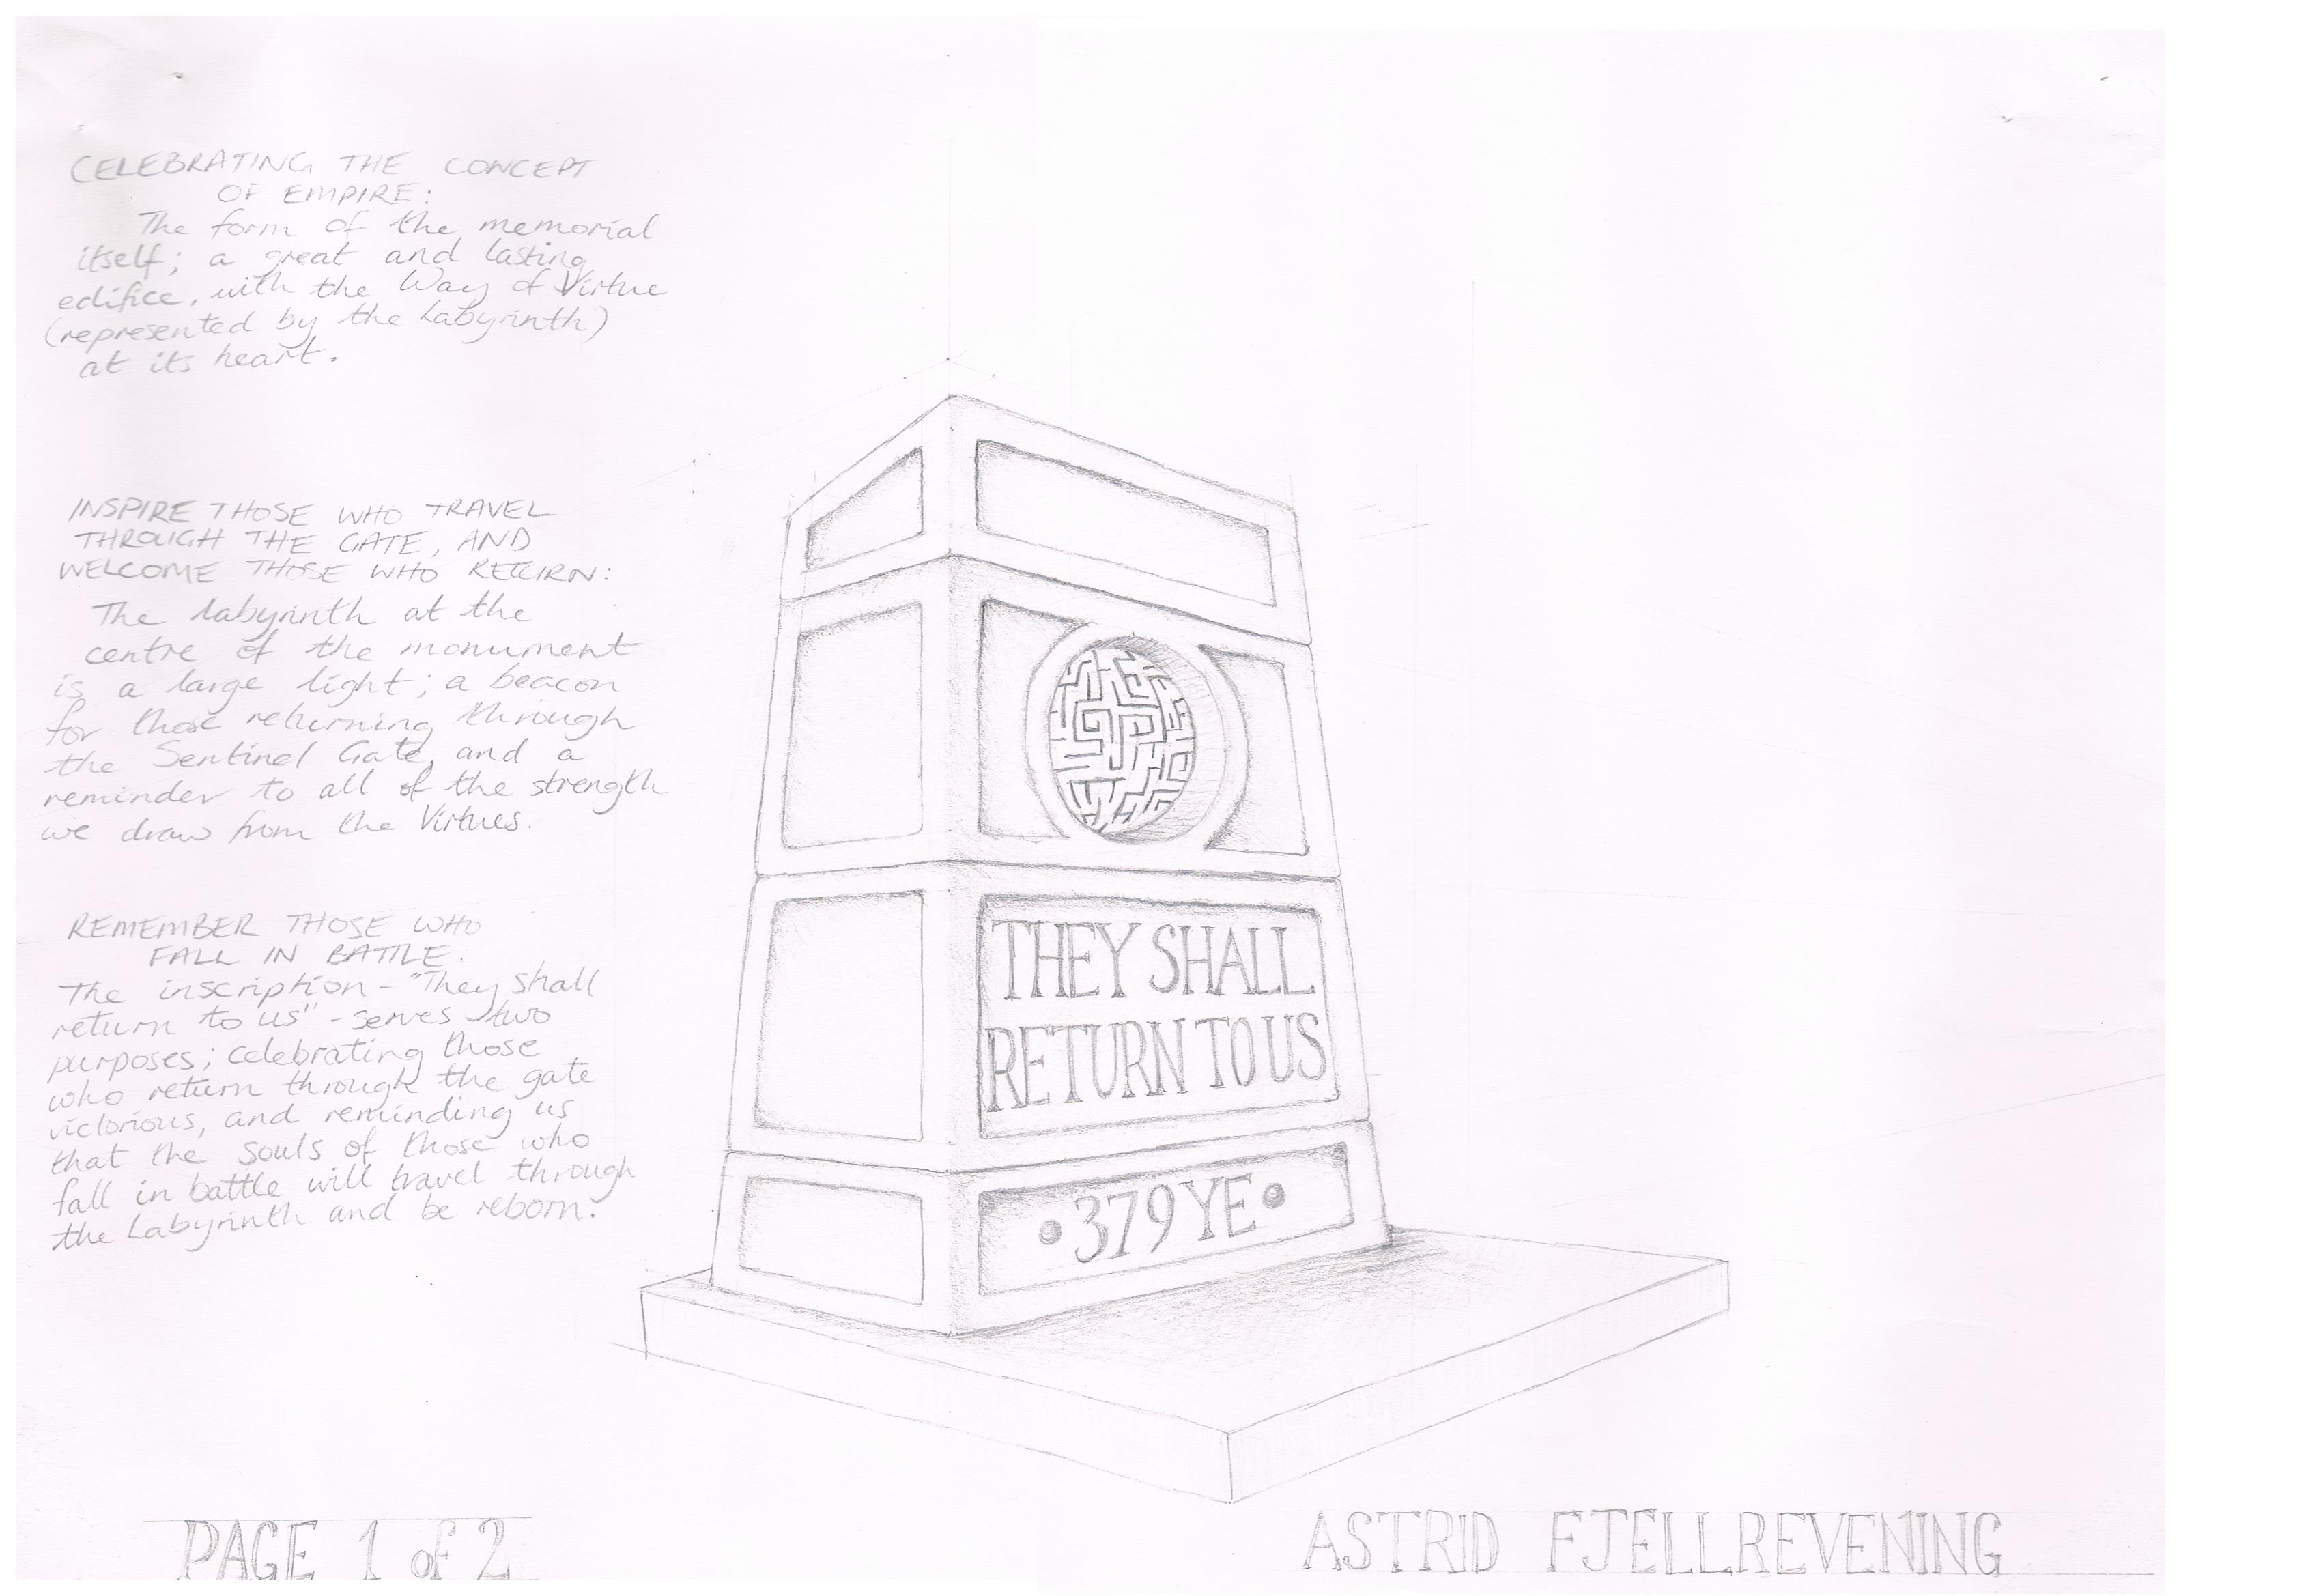 CELEBRATING THE CONCEPT
OF EMPIRE:
The form of the memorial
itself; a great and lasting
edifice, with the Way of Virtue
(represented by the Labyrinth)
at its heart.
INSPIRE THOSE WHO TRAVEL
THROUGH THE GATE, AND
WELCOME THOSE WHO RETURN:
The labyrinth at the
centre of the monument
is a large light; a beacon
for those returning through
the Sentinel Gate, and a
reminder to all of the strength
we draw from the Virtues.
REMEMBER THOSE WHO
FALL IN BATTLE:
The inscription - "They shall
return to us" - serves two
purposes; celebrating those
who return through the gate
victorious, and reminding us
that the souls of those who
fall in battle will travel through
the Labyrinth and be reborn.
THEY SHALL
RETURN TO US
•379 YE•
PAGE 1 of 2
ASTRID FJELLREVENING